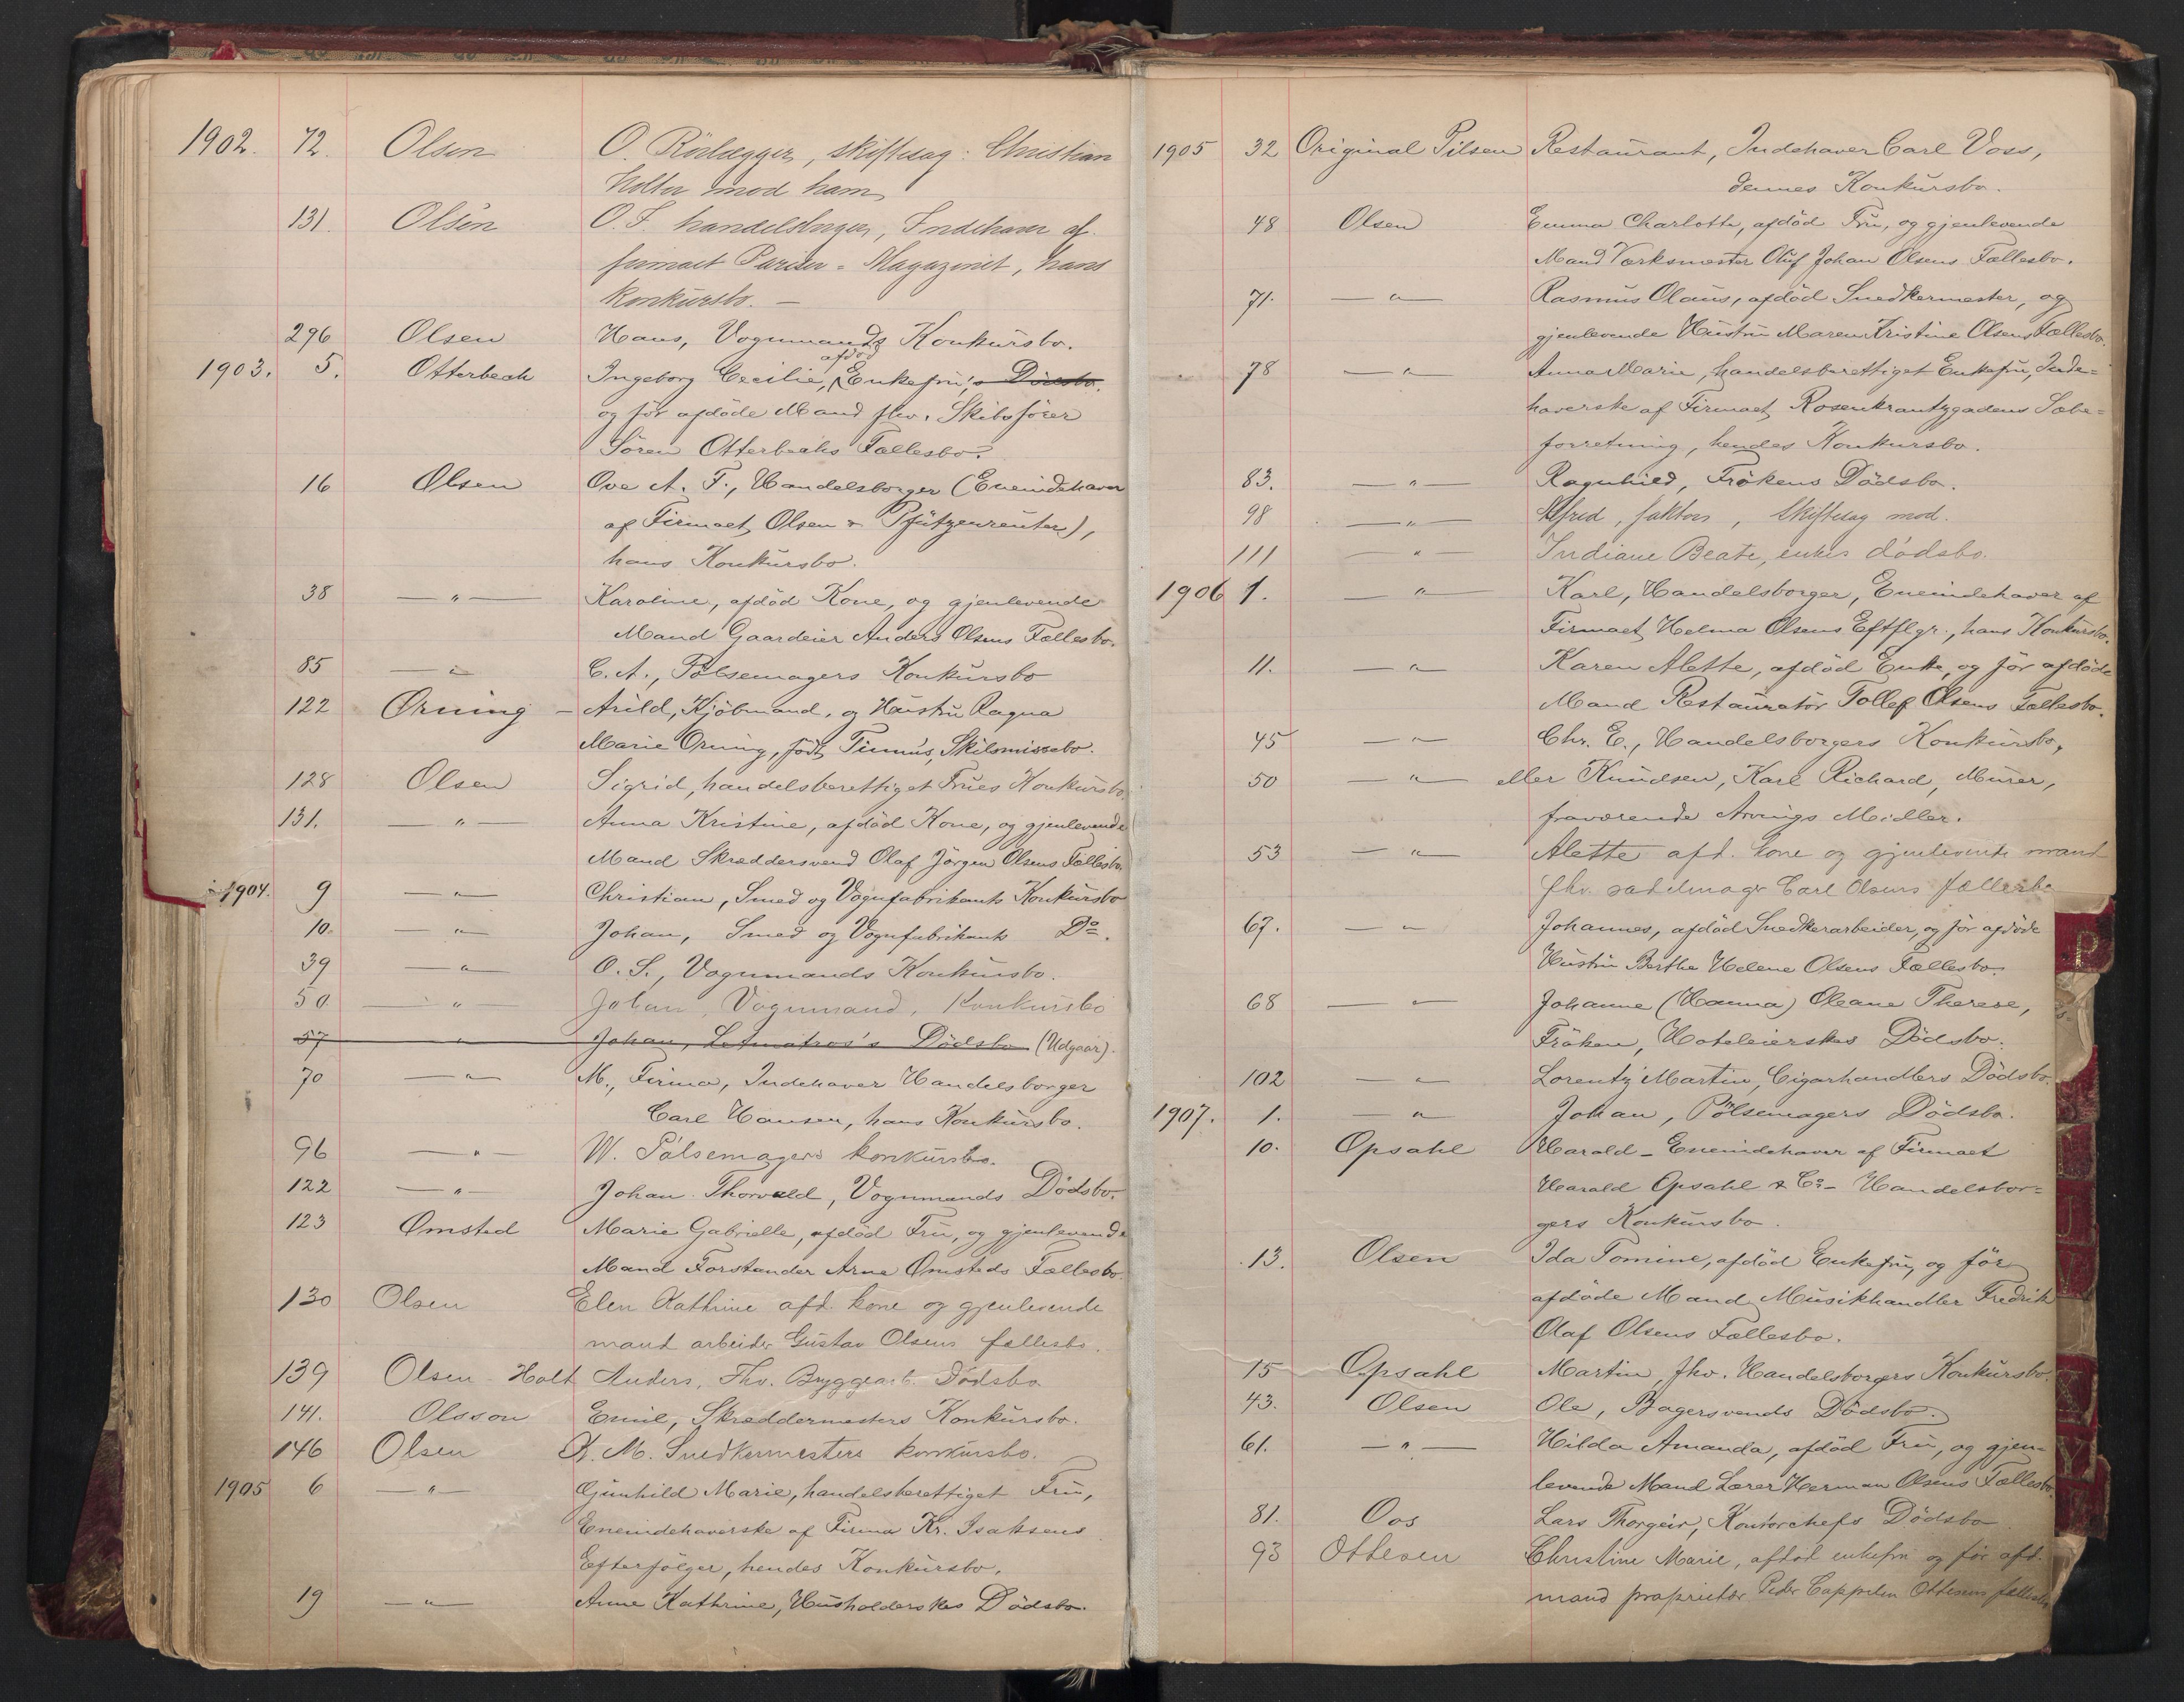 1902. 72. Olsen O. Rörlægger, skiftesag: Christian
Holter mod ham
131. Olsen O. F. handelsborger, Indehaver af
firmaet Pariser-Magazinet, hans
konkursbo. —
296 Olsen Hans, Vognmands Konkursbo.
1903. 5. Otterbech Ingeborg Cecilie, afdöd Enkefru's Dödsbo.
og för afdöde Mand fhv. Skibsförer
Sören Otterbechs Fællesbo.
16 Olsen Ove A. F., Handelsborger (Eneindehaver
af Firmaet Olsen & Pfützenreuter),
hans Konkursbo.
38 — " — Karoline, afdöd Kone, og gjenlevende
Mand Gaardeier Anders Olsens Fællesbo.
85 — " — C. A., Pölsemagers Konkursbo
122 Örning – Arild, Kjöbmand, og Hustru Ragna
Marie Örning, födt Timms, Skilsmissebo.
128 Olsen Sigrid, handelsberettiget Frues Konkursbo.
131. — " — Anna Kristine, afdöd Kone, og gjenlevende
Mand Skræddersvend Olaf Jörgen Olsens Fællesbo.
1904. 9 — " — Christian, Smed og Vognfabrikants Konkursbo
10. — " — Johan, Smed og Vognfabrikants Do.
39 — " — O. S., Vognmands Konkursbo.
50 — " — Johan, Vognmand, Konkursbo
57 — " — Johan, Letmatros's Dödsbo (Udgaar).
70 — " — M., Firma, Indehaver Handelsborger
Carl Hansen, hans Konkursbo.
96 — " — W. Pölsemagers konkursbo.
122 — " — Johan Thorvald, Vognmands Dödsbo.
123 Omsted Marie Gabrielle, afdöd Fru, og gjenlevende
Mand Forstander Arne Omsteds Fællesbo.
130 Olsen Elen Kathrine afd. kone og gjenlevende
mand arbeider Gustav Olsens fællesbo.
139 Olsen-Holt Anders, Fhv. Bryggearb. Dödsbo
141. Olsson Emil, Skræddermesters Konkursbo.
146 Olsen A. M. Snedkermesters konkursbo.
1905 6 — " — Gunhild Marie, handelsberettiget Fru,
Eneindehaverske af Firma Kr. Isaksens
Efterfölger, hendes Konkursbo.
19 — " — Anne Kathrine, Husholderskes Dödsbo.
1905 32 Original Pilsen Restaurant, Indehaver Carl Voss,
dennes Konkursbo.
48 Olsen Emma Charlotte, afdöd Fru, og gjenlevende
Mand Værksmester Oluf Johan Olsens Fællesbo.
71. — " — Rasmus Olaus, afdöd Snedkermester, og
gjenlevende Hustru Maren Kristine Olsens Fællesbo.
78 — " — Anna Marie, handelsberettiget Enkefru, Inde=
haverske af Firmaet Rosenkrantzgadens Sæbe=
forretning, hendes Konkursbo.
83. — " — Ragnhild, Frökens Dödsbo.
98 — " — Alfred, faktors, Skiftesag mod.
111 — " — Indiane Beate, enkes dödsbo.
1906 1. — " — Karl, Handelsborger, Eneindehaver af
Firmaet Helma Olsens Eftflgr., hans Konkursbo.
11. — " — Karen Alette, afdöd Enke, og för afdöde
Mand Restauratör Tollef Olsens Fællesbo.
45 — " — Chr. E., Handelsborgers Konkursbo.
50 — " — eller Knudsen, Karl Richard, Murer,
fraværende Arvings Midler.
53 — " — Alette afd. kone og gjenlevende mand
fhv. sadelmager Carl Olsens fællesbo
67. — " — Johannes, afdöd Snedkerarbeider, og för afdöde
Hustru Berthe Helene Olsens Fællesbo.
68 — " — Johanne (Hanna) Oleane Therese,
Fröken, Hoteleierskes Dödsbo.
102 — " — Lorentz Martin, Cigarhandlers Dödsbo.
1907. 1. — " — Johan, Pölsemagers Dödsbo.
10. Opsahl Harald – Eneindehaver af Firmaet
Harald Opsahl & Co – Handelsbor=
gers Konkursbo.
13. Olsen Ida Tomine, afdöd Enkefru, og för
afdöde Mand Musikhandler Fredrik
Olaf Olsens Fællesbo.
15 Opsahl Martin, fhv. Handelsborgers Konkursbo.
43. Olsen Ole, Bagersvends Dödsbo.
61. — " — Hilda Amanda, afdöd Fru, og gjen=
levende Mand Lærer Herman Olsens Fællesbo.
81. Oos Lars Thorgeir, Kontorchefs Dödsbo
93 Ottesen Christine Marie, afdöd enkefru og för afd.
mand proprietær Peder Cappelen Ottesens fællesbo
P